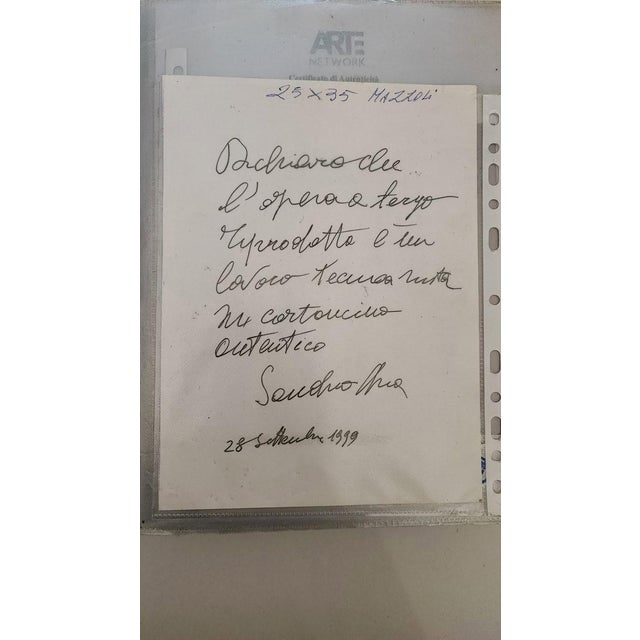 ARTE
NETWORK
Certificato di Autenticità
25x35 MAZZOLI
Dichiaro che
l'opera a tergo
riprodotta è un
lavoro tecnica mista
su cartoncino
autentico
Sandro Chia
28 Settembre 1999